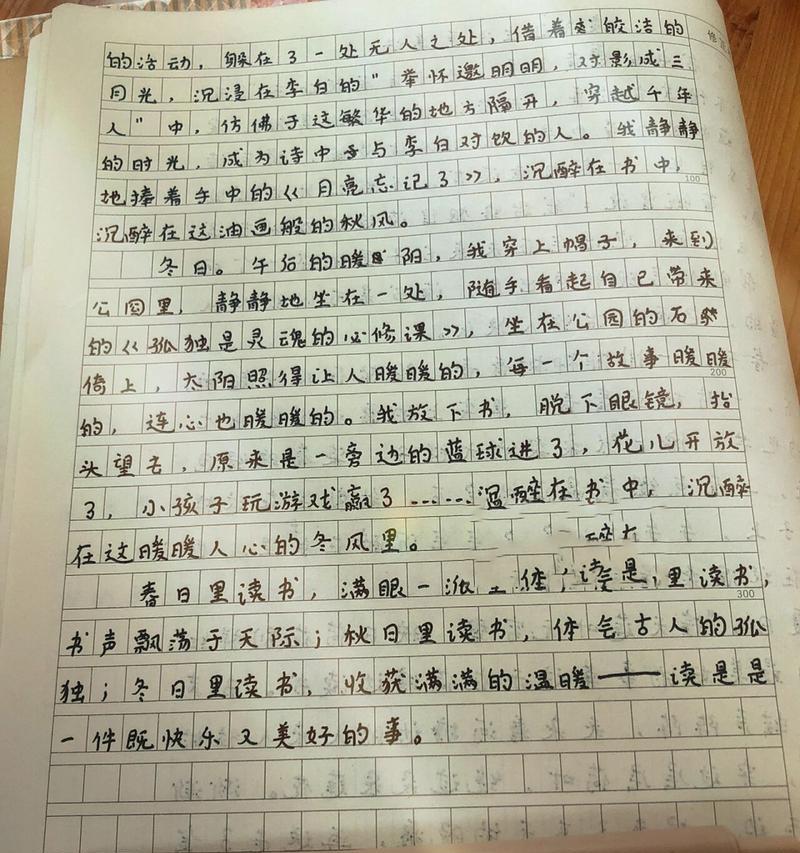 的活动，躲在了一处无人之处，借着皎洁的
月光，沉浸在李白的“举怀邀明明，对影成三
人”中，仿佛于这繁华的地方隔开，穿越千年
的时光，成为诗中与李白对饮的人。我静静
地捧着手中的《月亮忘记了》，沉醉在书中，
100
沉醉在这油画般的秋风。
冬日。午后的暖阳，我穿上帽子，来到
公园里，静静地坐在一处，随手看起自己带来
的《孤独是灵魂的必修课》，坐在公园的石
倚上，太阳照得让人暖暖的，每一个故事暖暖
200
的，连心也暖暖的。我放下书，脱下眼镜，抬
头望去，原来是一旁边的蓝球进了，花儿开放
了，小孩子玩游戏赢了……沉醉在书中，沉醉
在这暖暖人心的冬风里。
春日里读书，满眼一派 里读书，
300
书声飘荡于天际；秋日里读书，体气古人的孤
独；冬日里读书，收获满满的温暖——读是是
一件既快乐又美好的事。